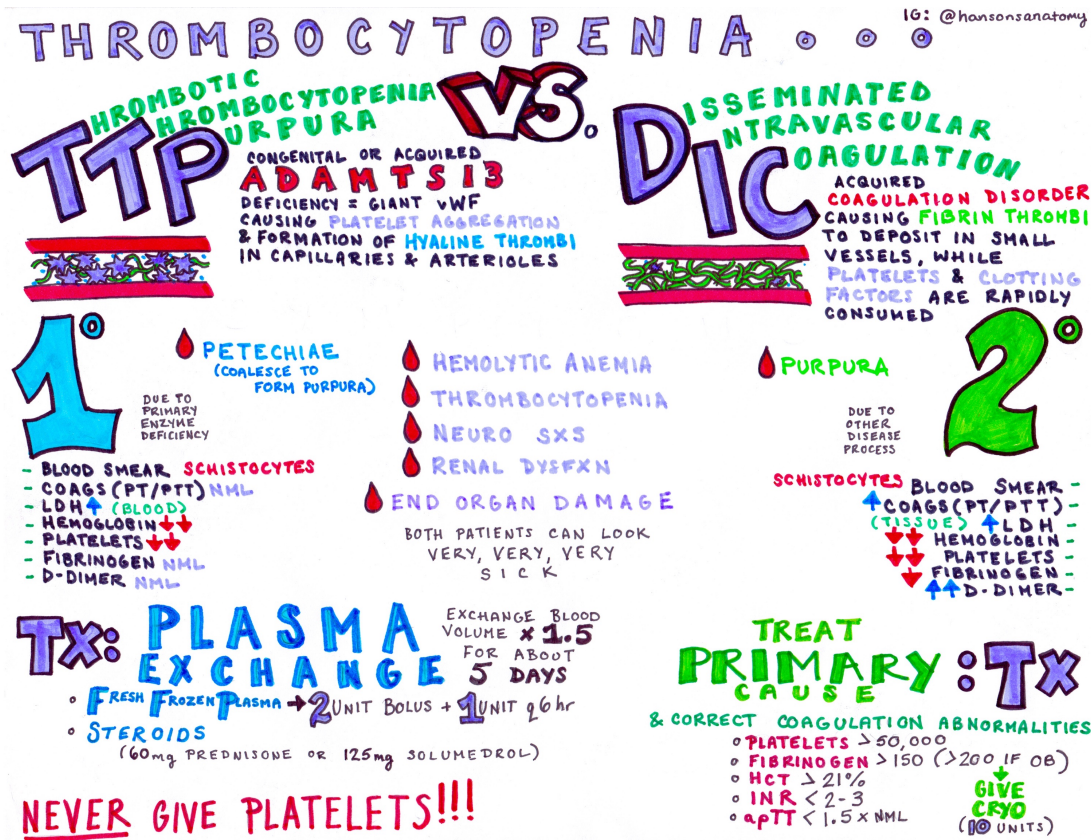 IG: @hansonsanatomy
THROMBOCYTOPENIA...
TTP
THROMBOTIC
THROMBOCYTOPENIA
PURPURA
VS.
DIC
DISSEMINATED
INTRAVASCULAR
COAGULATION
CONGENITAL OR ACQUIRED
ADAMTS13
DEFICIENCY = GIANT vWF
CAUSING PLATELET AGGREGATION
& FORMATION OF HYALINE THROMBI
IN CAPILLARIES & ARTERIOLES
ACQUIRED
COAGULATION DISORDER
CAUSING FIBRIN THROMBI
TO DEPOSIT IN SMALL
VESSELS, WHILE
PLATELETS & CLOTTING
FACTORS ARE RAPIDLY
CONSUMED
1°
PETECHIAE
(COALESCE TO
FORM PURPURA)
DUE TO
PRIMARY
ENZYME
DEFICIENCY
HEMOLYTIC ANEMIA
THROMBOCYTOPENIA
NEURO SXS
RENAL DYSFXN
END ORGAN DAMAGE
BOTH PATIENTS CAN LOOK
VERY, VERY, VERY
SICK
PURPURA
2°
DUE TO
OTHER
DISEASE
PROCESS
- BLOOD SMEAR SCHISTOCYTES
- COAGS (PT/PTT) NML
- LDH ↑ (BLOOD)
- HEMOGLOBIN ↓↓
- PLATELETS ↓↓
- FIBRINOGEN NML
- D-DIMER NML
SCHISTOCYTES BLOOD SMEAR -
↑ COAGS (PT/PTT) -
(TISSUE) ↑ LDH -
↓↓ HEMOGLOBIN -
↓↓ PLATELETS -
↓ FIBRINOGEN -
↑↑ D-DIMER -
TX: PLASMA
EXCHANGE
EXCHANGE BLOOD
VOLUME x 1.5
FOR ABOUT
5 DAYS
° FRESH FROZEN PLASMA → 2 UNIT BOLUS + 1 UNIT q6hr
° STEROIDS
(60mg PREDNISONE OR 125mg SOLUMEDROL)
NEVER GIVE PLATELETS!!!
TREAT
PRIMARY :TX
CAUSE
& CORRECT COAGULATION ABNORMALITIES
° PLATELETS > 50,000
° FIBRINOGEN > 150 (>200 IF OB)
° HCT > 21%
° INR < 2-3
° apTT < 1.5 x NML
↓
GIVE
CRYO
(10 UNITS)